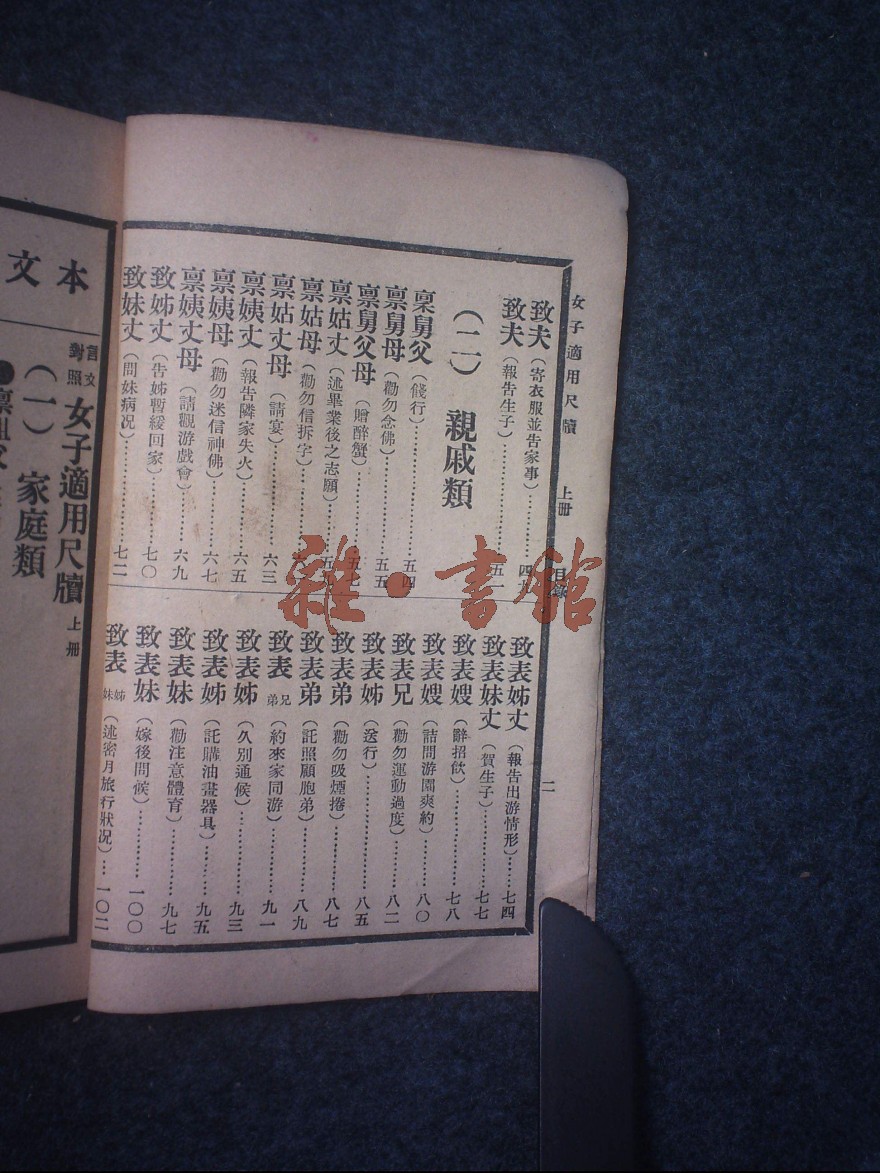 女子適用尺牘 上冊 目錄 二
致夫（寄衣服並告家事）…………四九
致夫（報告生子）…………五一
（二） 親戚類
稟舅父（餞行）…………五四
稟舅母（勸勿念佛）…………五五
稟舅父母（贈醉蟹）…………五七
稟姑丈（述畢業後之志願）…………五九
稟姑母（勸勿信拆字）…………
稟姑丈母（請宴）…………六三
稟姨丈（報告隣家失火）…………六五
稟姨母（勸勿迷信神佛）…………六七
稟姨丈母（請觀游戲會）…………六九
致姊丈（告姊暫緩回家）…………七〇
致妹丈（問妹病況）…………七二
致表姊丈（報告出游情形）…七四
致表妹丈（賀生子）…………七七
致表嫂（辭招飲）…………七八
致表嫂（詰問游園爽約）…………八〇
致表兄（勸勿運動過度）…………八二
致表姊（送行）…………八五
致表弟（勸勿吸煙捲）…………八七
致表弟（託照顧胞弟）…………八九
致表兄弟（約來家同游）…………九一
致表姊（久別通候）…………九三
致表姊（託購油畫器具）…………九五
致表妹（勸注意體育）…………九七
致表妹（嫁後問候）…………一〇〇
致表姊妹（述密月旅行狀況）…一〇二
本文
言文對照 女子適用尺牘 上冊
（一） 家庭類
雜·書館